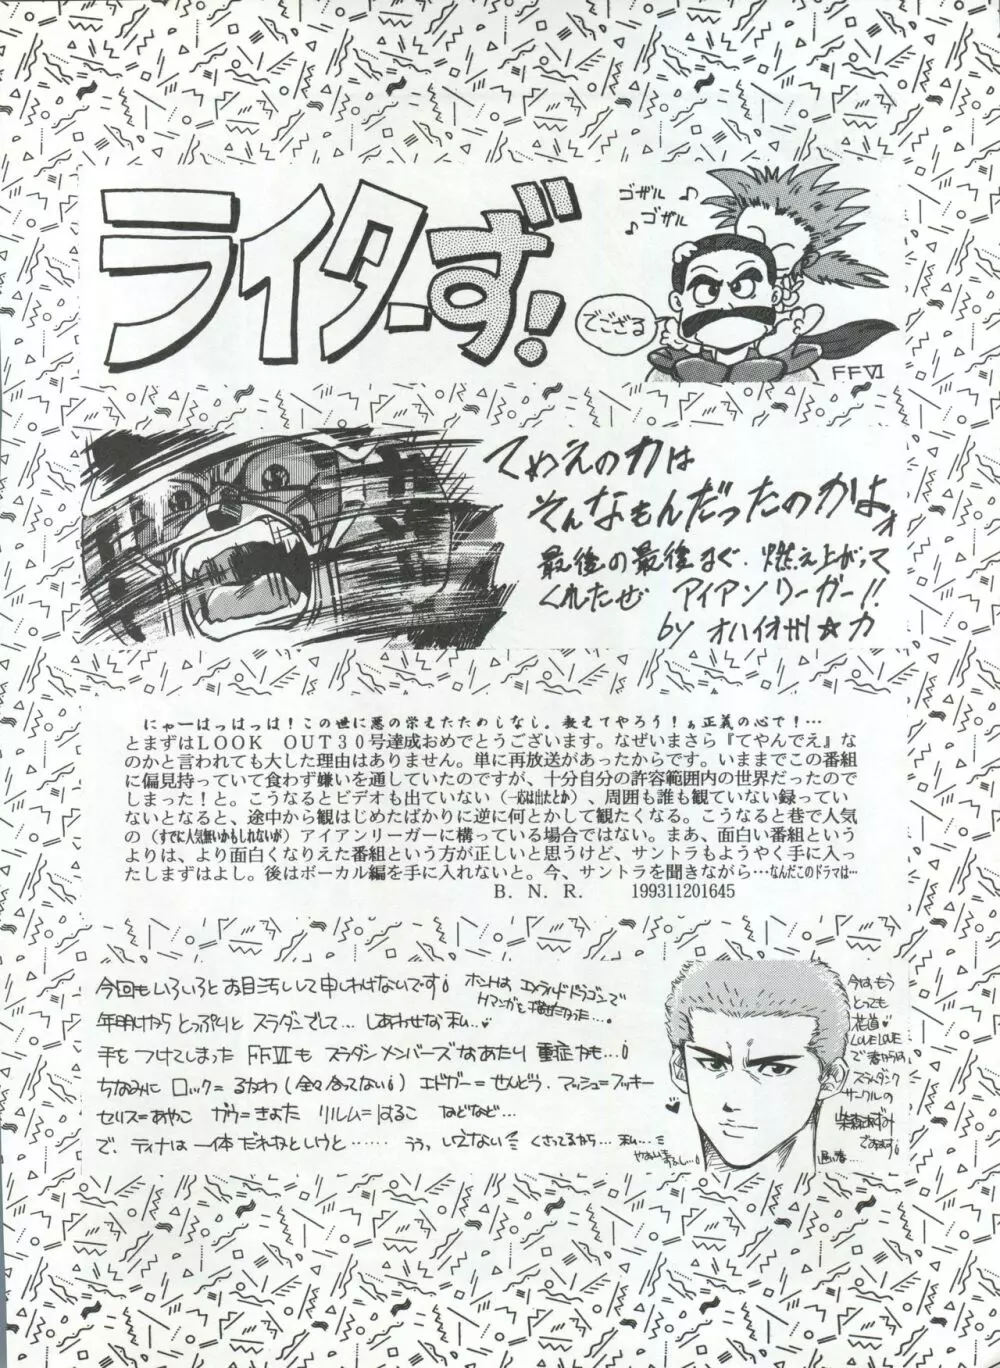 ライターず!
ゴザル♪
♪ゴザル
でござる
FFVI
てめえの力は
そんなもんだったのかよォ
最後の最後まで、燃え上がって
くれたぜ アイアンリーガー!!
by オハイオ州☆力
にゃーはっはっは!この世に悪の栄えたためしなし。教えてやろう!ぁ正義の心で!…
とまずはLOOK OUT30号達成おめでとうございます。なぜいまさら『てやんでえ』な
のかと言われても大した理由はありません。単に再放送があったからです。いままでこの番組
に偏見持っていて食わず嫌いを通していたのですが、十分自分の許容範囲内の世界だったので
しまった!と。こうなるとビデオも出ていない(一応は出たとか)、周囲も誰も観ていない録ってい
ないとなると、途中から観はじめたばかりに逆に何とかして観たくなる。こうなると巷で人気
の(すでに人気無いかもしれないが)アイアンリーガーに構っている場合ではない。まあ、面白い番組という
よりは、より面白くなりえた番組という方が正しいと思うけど、サントラもようやく手に入っ
たしまずはよし。後はボーカル編を手に入れないと。今、サントラを聞きながら…なんだこのドラマは…
B. N. R. 199311201645
今回もいろいろとお目汚しして申しわけないです! ホントは エメラルドドラゴンで
マンガを描きたかった…。
年明けからとっぷりと スラダンでして… しあわせな私…♥
手をつけてしまった FFVIも スラダンメンバーズなあたり 重症かも…!
ちなみに ロック=るかわ(全々合ってない!) エドガー=せんどう、マッシュ=フッキー
セリス=あやこ ガウ=きよた リルム=はるこ などなど…
で、ティナは一体だれかというと…… うぅっ しどない くさってるから… 私…
今はもう
とっても
花道♥
LOVE LOVE
スラムダンク
サークルの
柴森あずみ
でした!